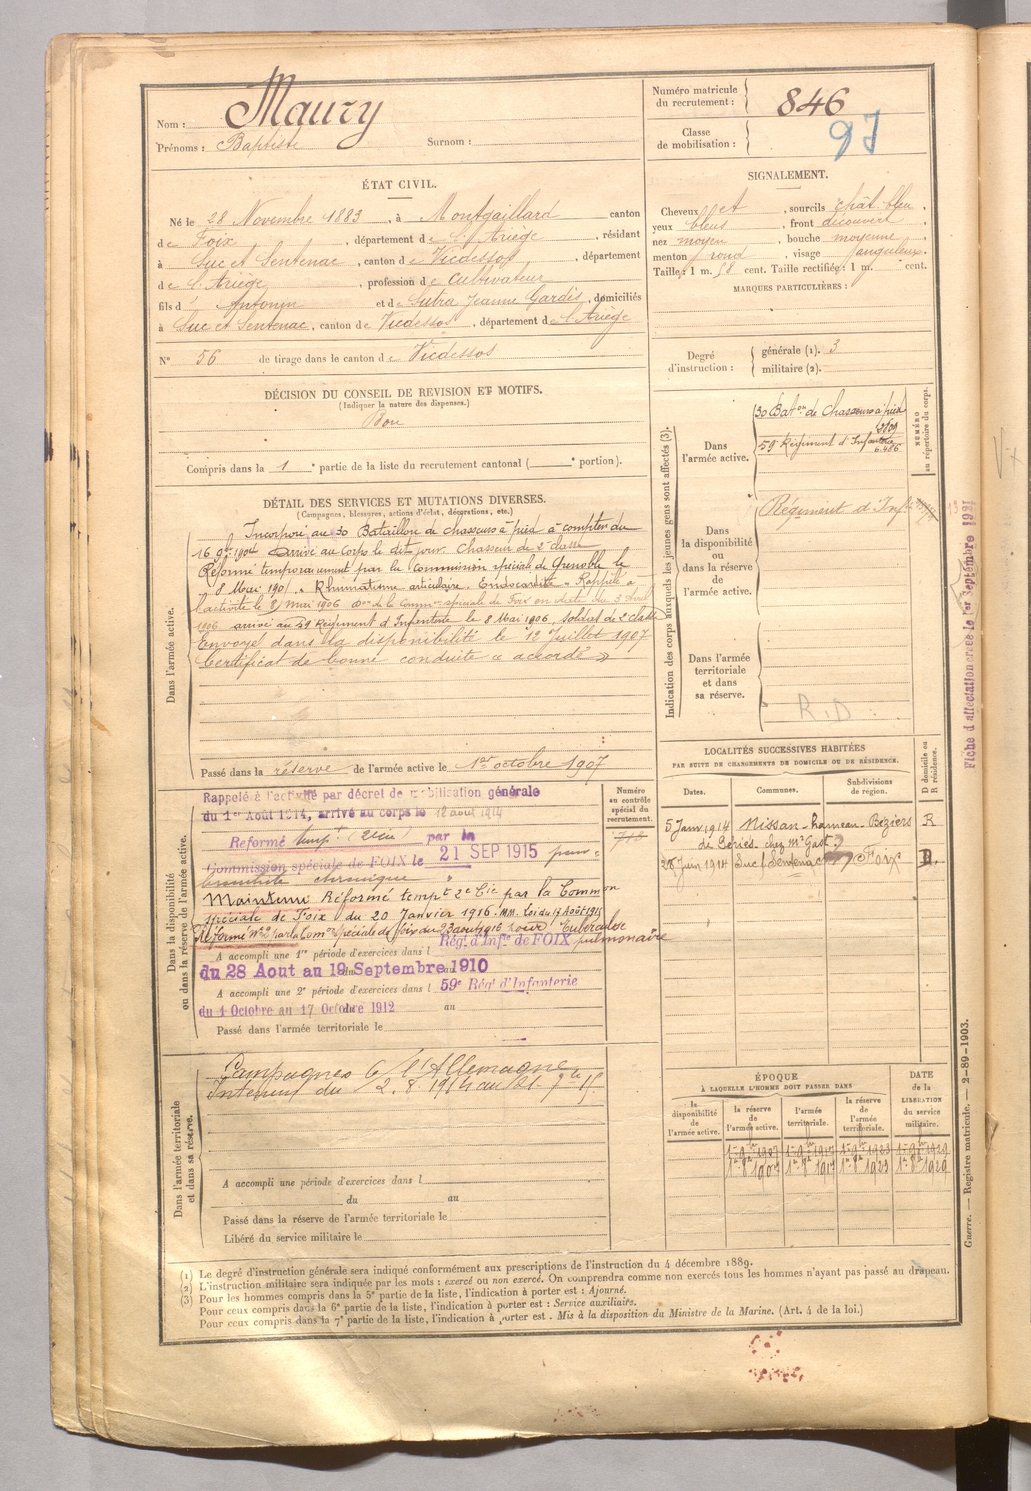 Nom : Maury
Prénoms : Baptiste Surnom :
Numéro matricule du recrutement : 846
Classe de mobilisation : 97
ÉTAT CIVIL.
Né le 28 Novembre 1883, à Montgaillard canton
de Foix, département de l'Ariège, résidant
à Suc et Sentenac, canton de Vicdessos, département
de l'Ariège, profession de cultivateur
fils d' Antonin et de Sutra Jeanne Gardès, domiciliés
à Suc et Sentenac, canton de Vicdessos, département de l'Ariège
N° 56 de tirage dans le canton de Vicdessos
DÉCISION DU CONSEIL DE REVISION ET MOTIFS.
(Indiquer la nature des dispenses.)
Bon
Compris dans la 1 e partie de la liste du recrutement cantonal ( e portion).
SIGNALEMENT.
Cheveux et, sourcils chât. bleu,
yeux bleus, front découvert
nez moyen, bouche moyenne,
menton rond, visage
Taille : 1 m. 58 cent. Taille rectifiée : 1 m. cent.
MARQUES PARTICULIÈRES :
Degré d'instruction : générale (1). 3
militaire (2).
DÉTAIL DES SERVICES ET MUTATIONS DIVERSES.
(Campagnes, blessures, actions d'éclat, décorations, etc.)
Dans l'armée active.
Incorporé au 30 Bataillon de chasseurs à pied à compter du
16 9bre 1904 Arrivé au corps le dit jour. Chasseur de 2e classe
Réformé temporairement par la commission spéciale de Grenoble le
8 Mai 190 . Rhumatisme articulaire. Endocardite. Rappelé à
l'activité le 8 mai 1906 de la Comm. spéciale de Foix en date du 3 Avril
1906 arrivé au 59 Régiment d'Infanterie le 8 Mai 1906, soldat de 2e classe
Envoyé dans la disponibilité le 12 Juillet 1907
Certificat de bonne conduite " accordé "
Passé dans la réserve de l'armée active le 1er octobre 1907
Indication des corps auxquels les jeunes gens sont affectés (3).
NUMÉRO au répertoire du corps.
Dans l'armée active.
30 Baton de Chasseurs à pied
59 Régiment d'Infanterie
6.486
Dans la disponibilité ou dans la réserve de l'armée active.
Régiment d'Infie
Dans l'armée territoriale et dans sa réserve.
R.D
Fiche d'affectation créée le 1er Septembre 1921
Dans la disponibilité ou dans la réserve de l'armée active.
Numéro au contrôle spécial du recrutement.
Rappelé à l'activité par décret de mobilisation générale
du 1er Août 1914, arrivé au corps le 12 aout 1914
Reformé tempt par la
Commission spéciale de FOIX le 21 SEP 1915 pour
bronchite chronique
Maintenu Réformé tempt 2e Cie par la Common
spéciale de Foix du 20 Janvier 1916. MM. Loi du 17 Août 1915
Réformé n° 2 par la Comon spéciale de Foix du 23 août 1916 pour Tuberculose
pulmonaire
A accompli une 1re période d'exercices dans l Régt d'Infie de FOIX
du 28 Aout au 19 Septembre 1910
A accompli une 2e période d'exercices dans l 59e Régt d'Infanterie
du 1 Octobre au 17 Octobre 1912 au
Passé dans l'armée territoriale le
LOCALITÉS SUCCESSIVES HABITÉES
PAR SUITE DE CHANGEMENTS DE DOMICILE OU DE RÉSIDENCE.
Dates. Communes. Subdivisions de région. D domicile ou R résidence.
5 Janv 1914 Nissan-hameau Béziers R
de Périès. chez Mr Gast
28 Juin 1914 Suc/Sentenac Foix D.
Dans l'armée territoriale et dans sa réserve.
Campagnes C/ l'Allemagne
Intérieur du 2.8.1914 au 21. 7bre 15
A accompli une période d'exercices dans l
du au
Passé dans la réserve de l'armée territoriale le
Libéré du service militaire le
ÉPOQUE
À LAQUELLE L'HOMME DOIT PASSER DANS
la disponibilité de l'armée active. la réserve de l'armée active. l'armée territoriale. la réserve de l'armée territoriale. DATE de la LIBÉRATION du service militaire.
1er 8bre 1907 1er 8bre 1917 1er 8bre 1923 1er 8bre 1929
Guerre. — Registre matricule. — 2-89-1903.
(1) Le degré d'instruction générale sera indiqué conformément aux prescriptions de l'instruction du 4 décembre 1889.
(2) L'instruction militaire sera indiquée par les mots : exercé ou non exercé. On comprendra comme non exercés tous les hommes n'ayant pas passé au drapeau.
(3) Pour les hommes compris dans la 5e partie de la liste, l'indication à porter est : Ajourné.
Pour ceux compris dans la 6e partie de la liste, l'indication à porter est : Service auxiliaire.
Pour ceux compris dans la 7e partie de la liste, l'indication à porter est : Mis à la disposition du Ministre de la Marine. (Art. 4 de la loi.)